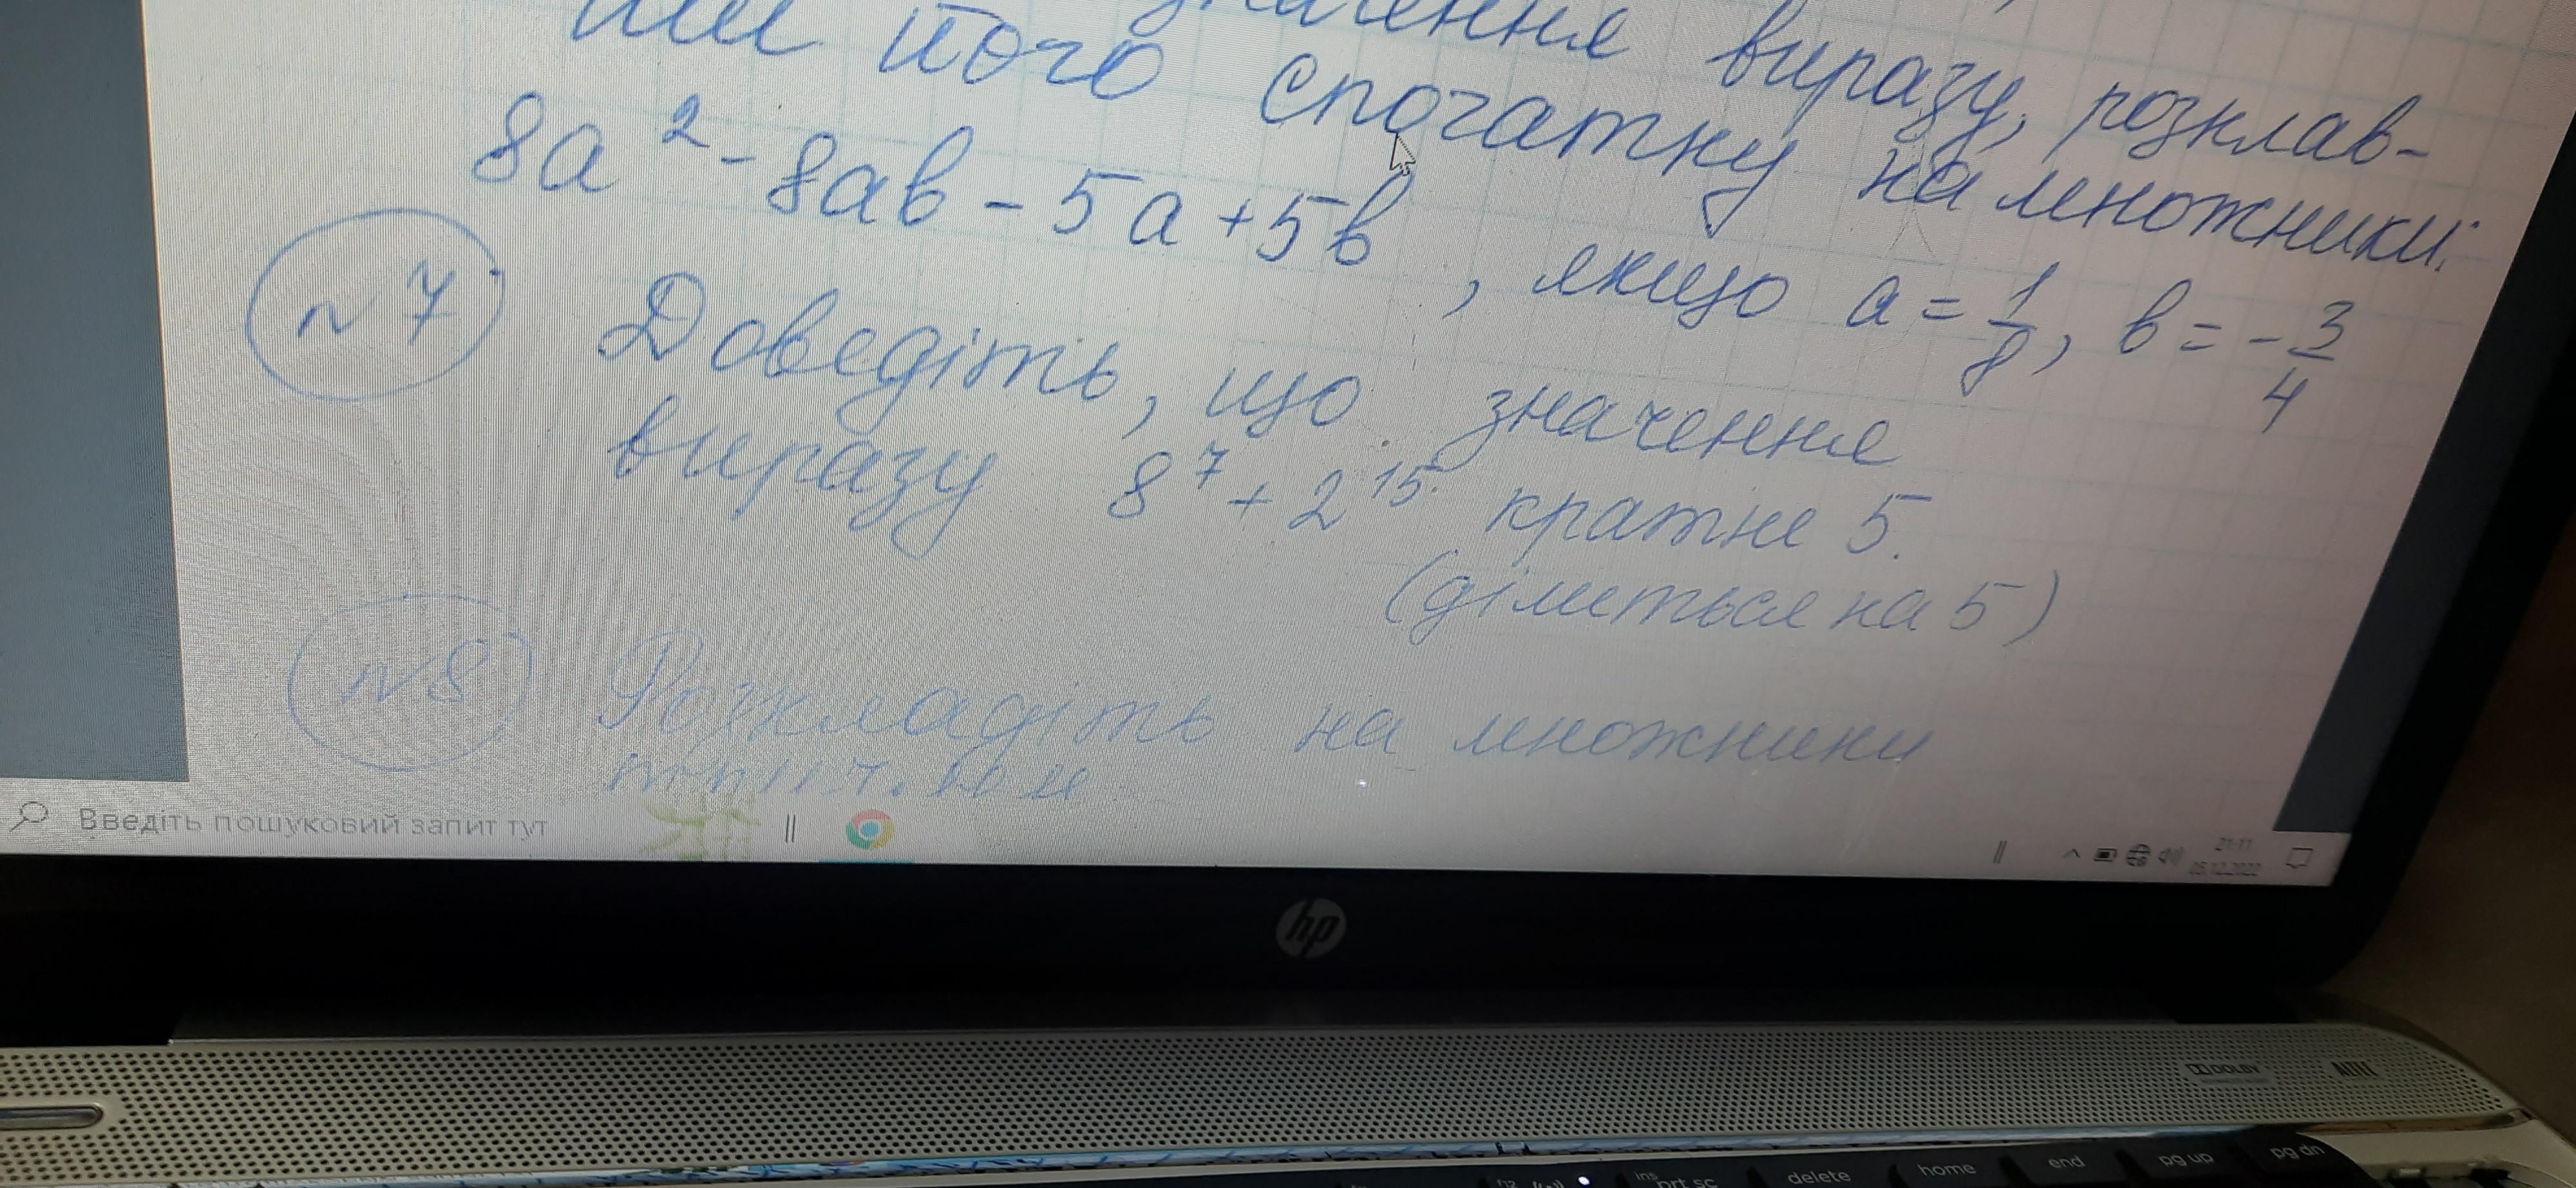 значення виразу, розклав-
ши його спочатку на множники:
8a² - 8ab - 5a + 5b, якщо a = 1/8, b = -3/4
№7 Доведіть, що значення
виразу 8⁷ + 2¹⁵ кратне 5.
(ділиться на 5)
№8 Розкладіть на множники
Введіть пошуковий запит тут
21:11
05.12.2022
hp
DOLBY
ins
prt sc
delete
home
end
pg up
pg dn